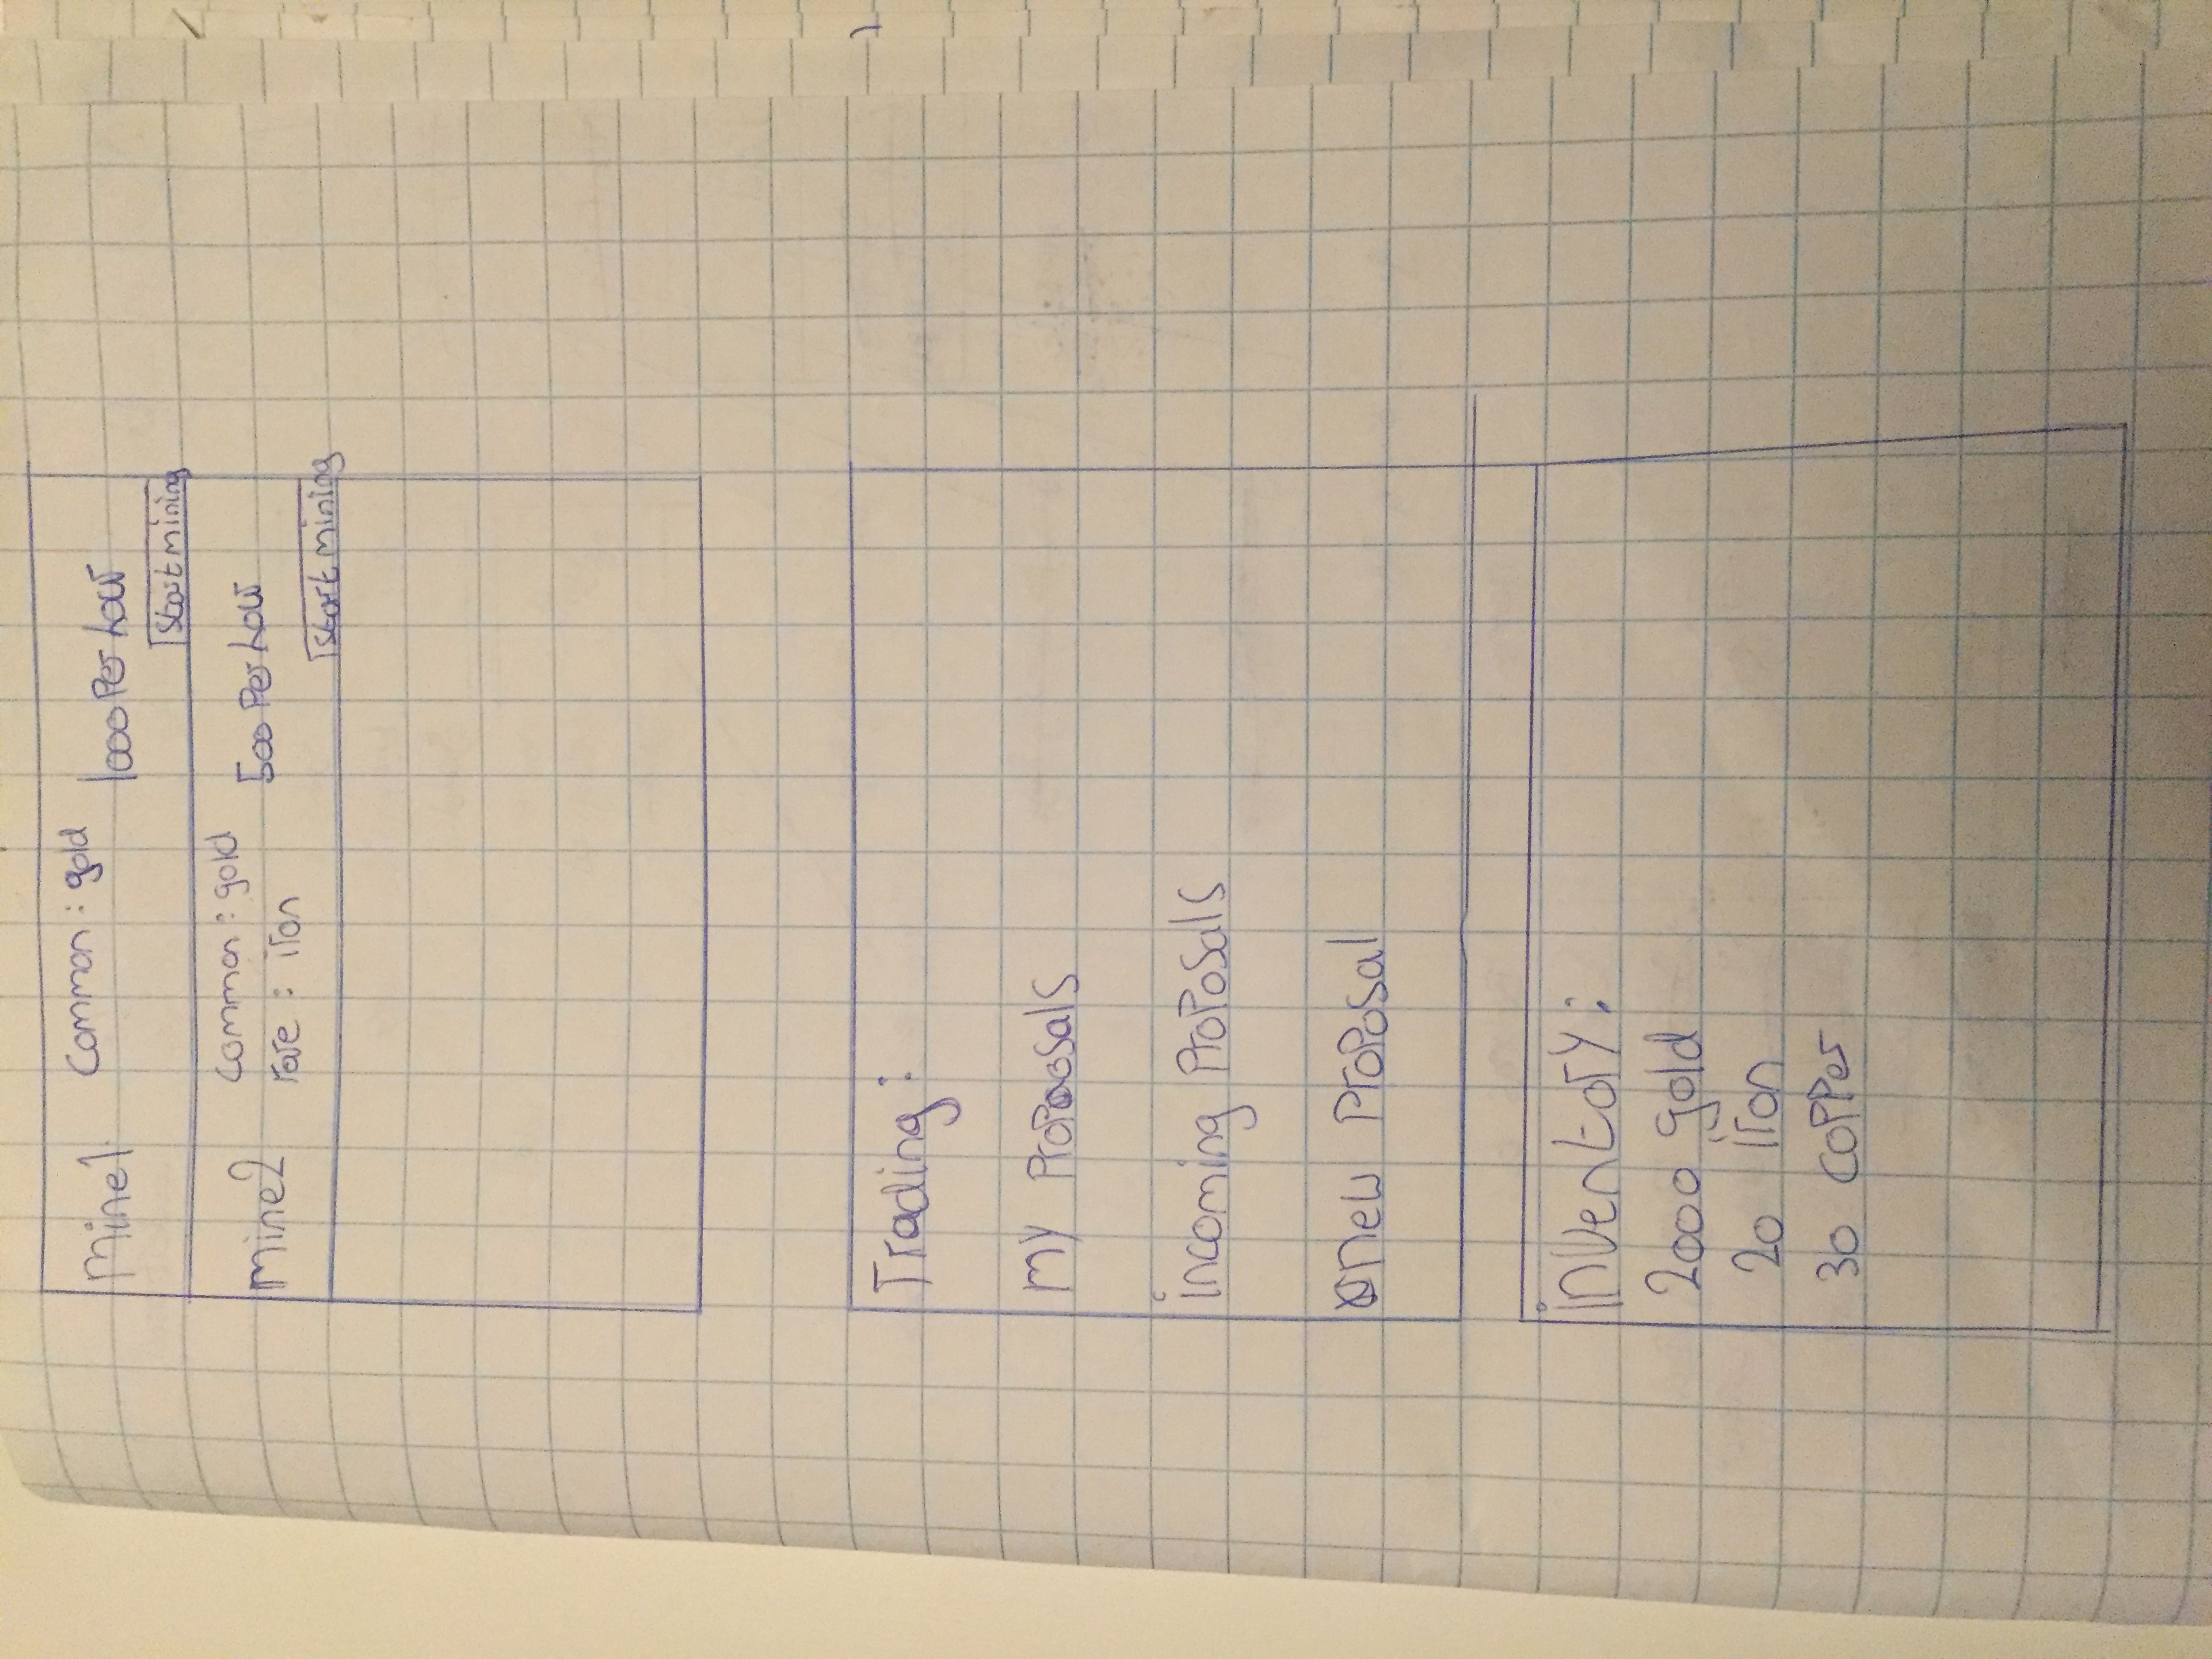 Mine1 Common : gold 1000 Per hour
Start mining
Mine2 common : gold 500 Per hour
rare : iron
Start mining
Trading :
MY ProPoosals
incoming ProPosals
new ProPosal
inventory :
2000 gold
20 iron
30 coPPer